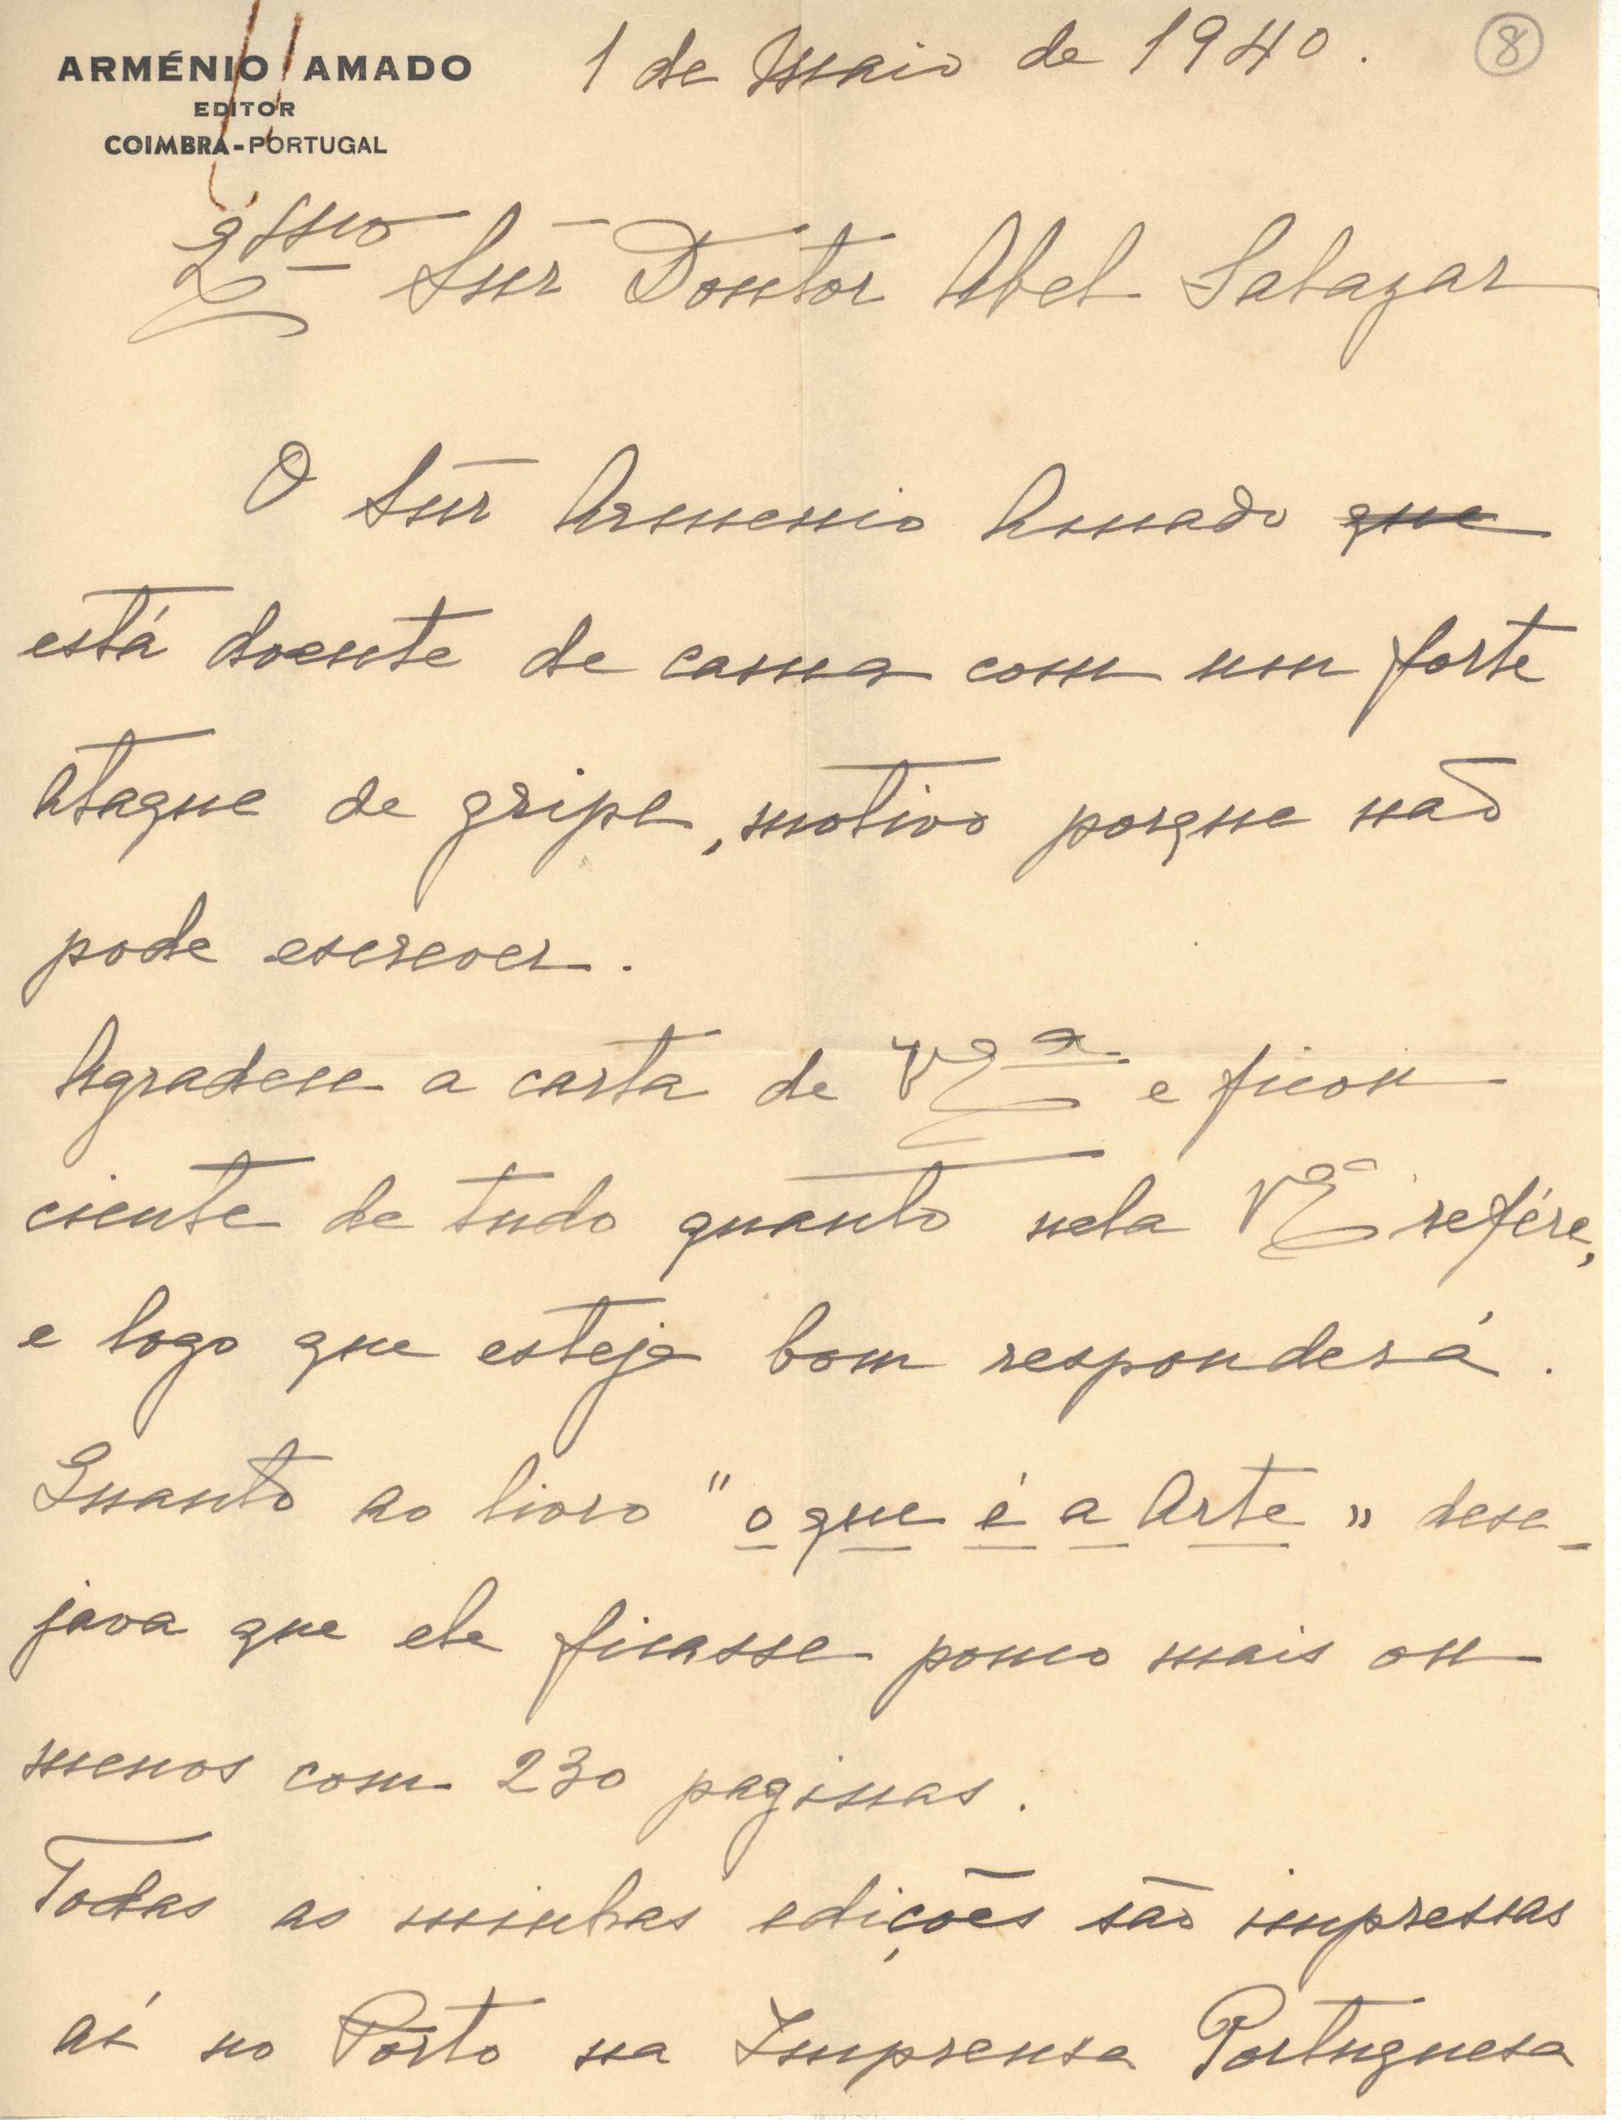 ARMÉNIO AMADO
EDITOR
COIMBRA-PORTUGAL
1 de Maio de 1940.
8
Exmo Snr Doutor Abel Salazar
O Snr Armenio Amado que
está doente de cama com um forte
ataque de gripe, motivo porque não
pode escrever.
Agradece a carta de V Exa e ficou
ciente de tudo quanto nela V Exa refére,
e logo que esteja bom responderá.
Quanto ao livro "o que é a Arte" dese-
java que ele ficasse pouco mais ou
menos com 230 paginas.
Todas as minhas edições são impressas
aí no Porto na Imprensa Portuguesa